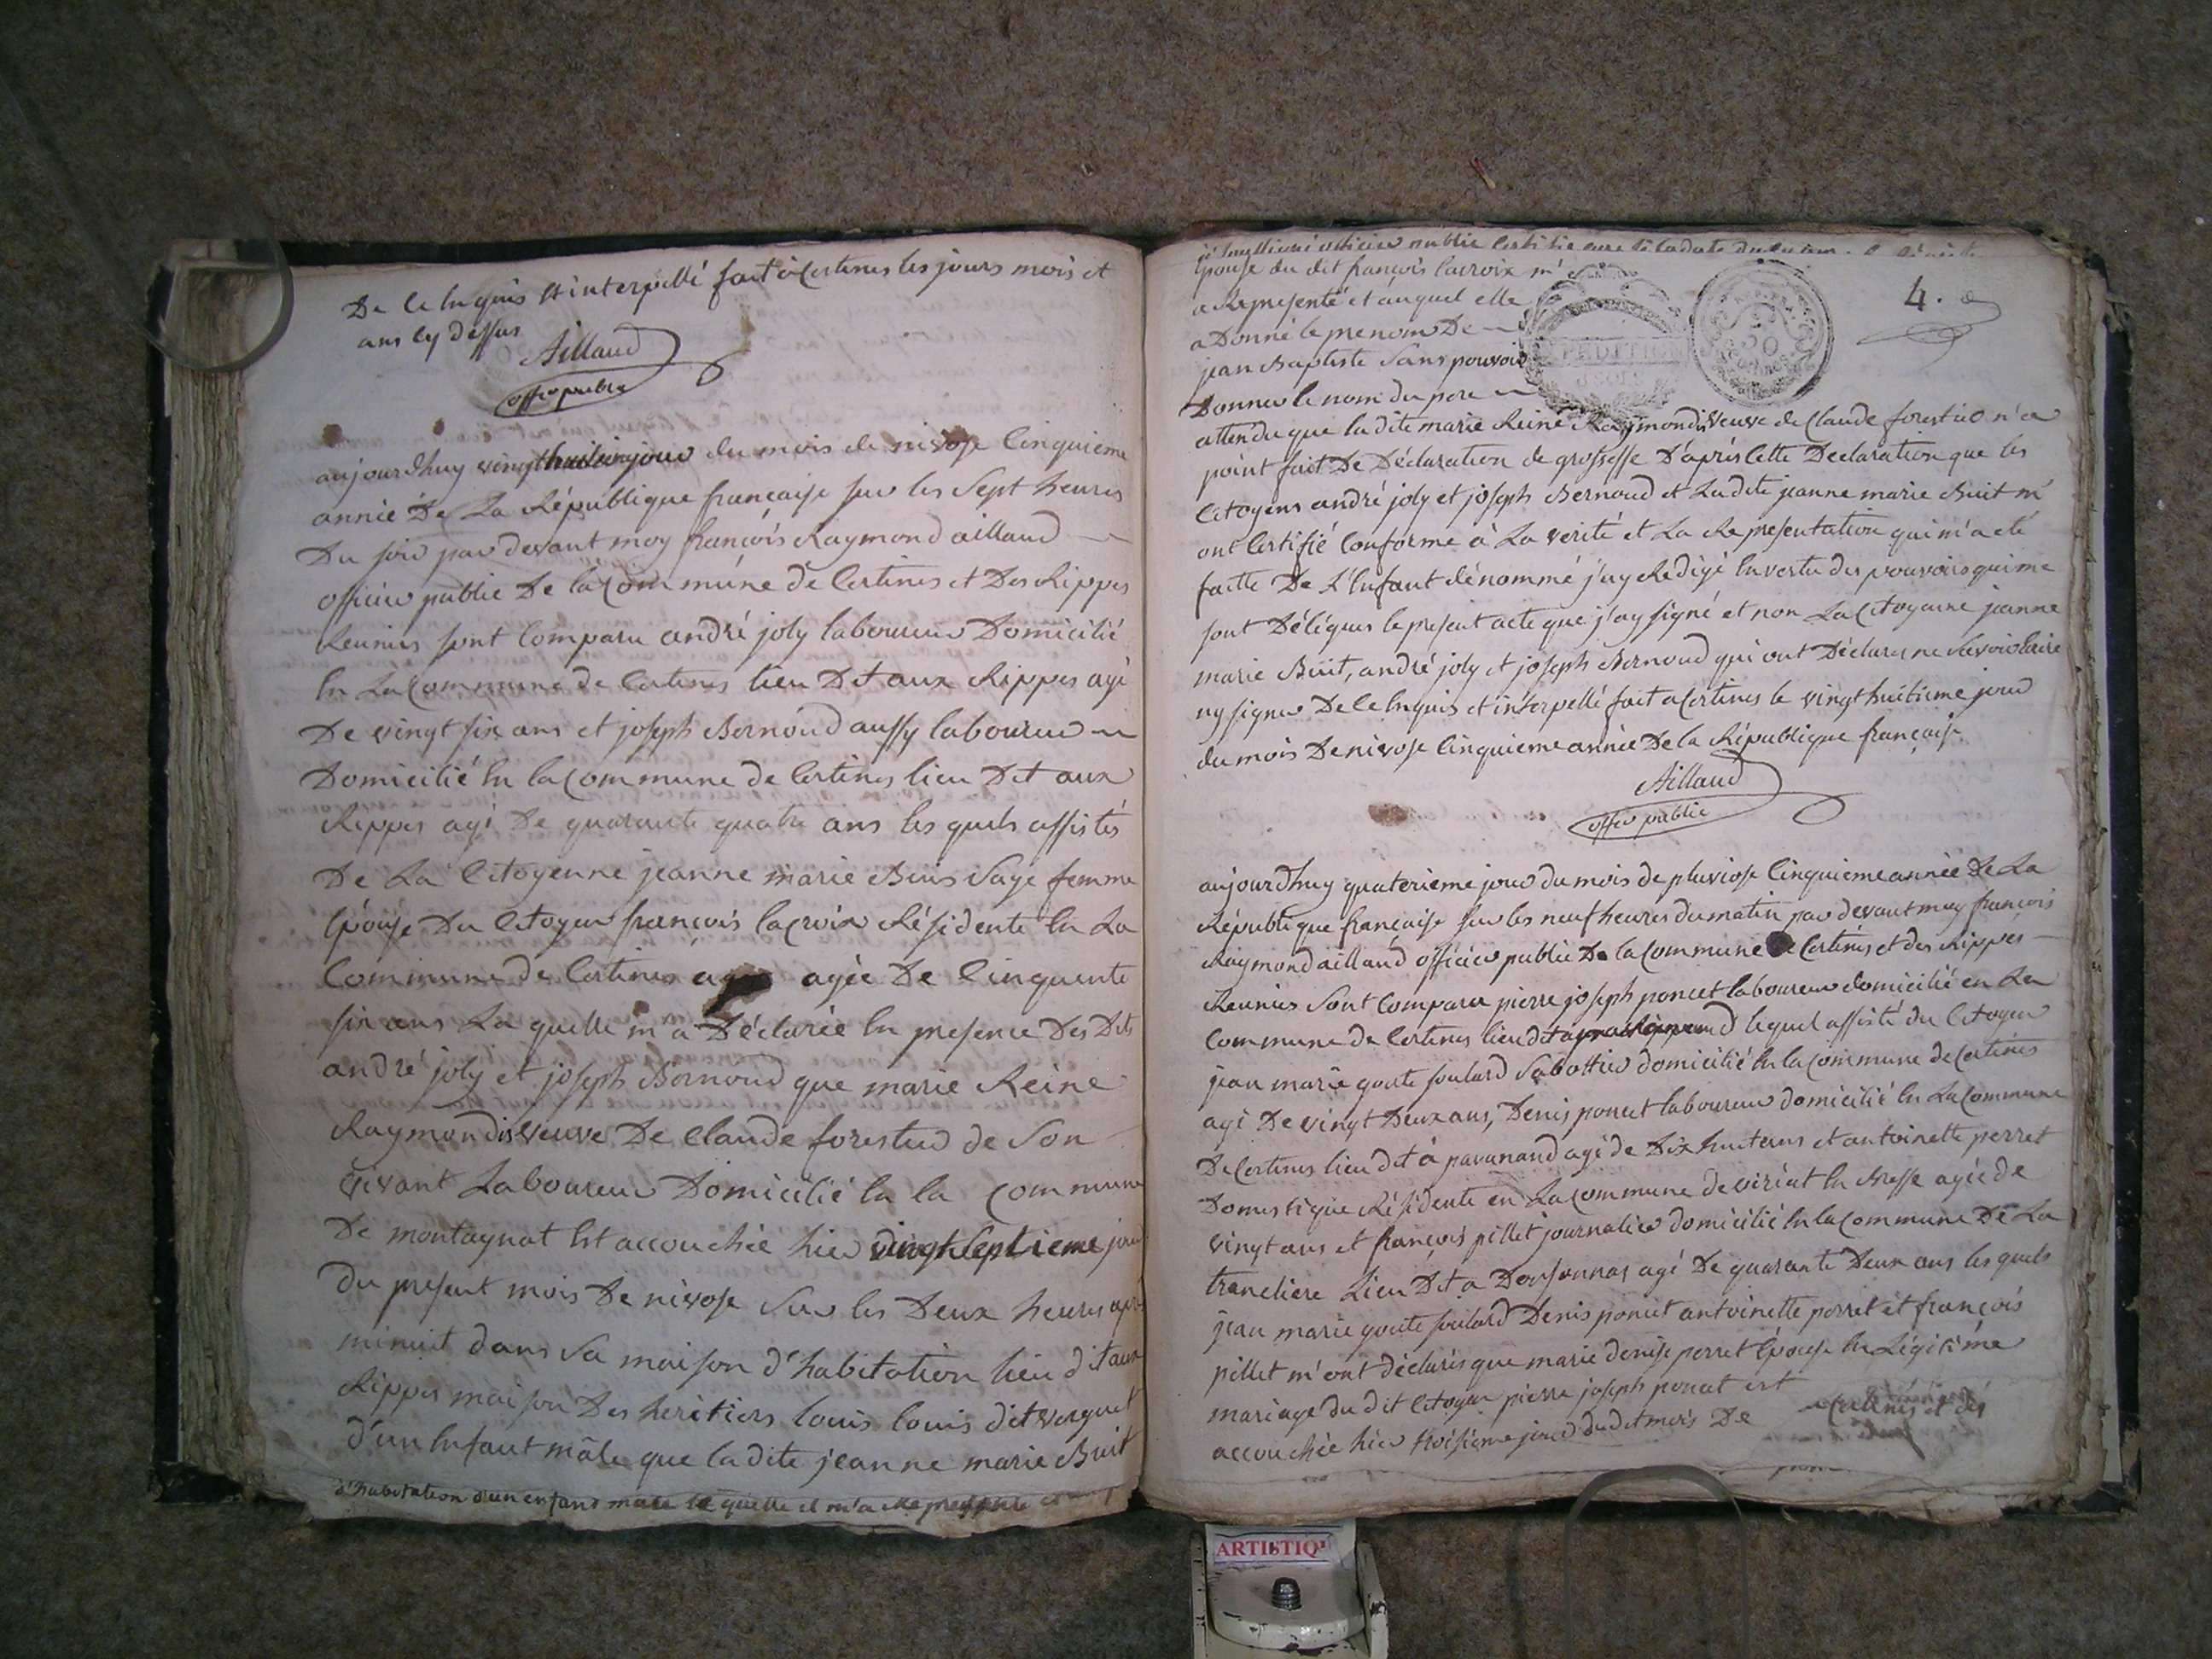 De Ce Enquis et interpellé fait à Certines les jours mois et
ans cy dessus
Aillaud
offier public
aujourdhuy vingt huitieme jour du mois de nivose Cinquieme
année De La République française sur les Sept heures
Du soir par devant moy françois Raymond aillaud
officier public De la Commune de Certines et Des Rippes
Reunies sont Comparu andré joly laboureur Domicilié
En La Commune de Certines lieu Dit aux Rippes agé
De vingt six ans et joseph Bernoud aussy laboureur
Domicilié En la Commune de Certines lieu Dit aux
Rippes agé De quarante quatre ans les quels assistés
De La Citoyenne jeanne marie Buis Sage femme
Epouse Du Citoyen françois lacroix Résidente En La
Commune de Certines agée De Cinquante
six ans La quelle m'a Déclarée En presence Des Dits
andré joly et joseph Bernoud que marie Reine
Raymondis veuve De Claude forestier de Son
vivant Laboureur Domicilié En la Commune
De montagnat Est accouchée hier vingt Septieme jour
Du present mois De nivose Sur les Deux heures après
minuit dans Sa maison d'habitation lieu dit aux
Rippes maison Des heritiers louis louis dit verguet
d'un Enfant mâle que la dite jeanne marie Buit
d'habitation d'un enfant male le quelle il m'a Representé
je soussigné officier public Certifie
Epouse du dit françois lacroix m'
a Representé et auquel elle
a Donné le prenom De
jean Baptiste Sans pouvoir
Donner le nom du pere
4.
attendu que la dite marie Reine Raymondis veuve de Claude forestier n'a
point fait De Déclaration de grossesse D'après Cette Declaration que les
Citoyens andré joly et joseph Bernoud et La dite jeanne marie Buit m'
ont Certifié Conforme à La verité et La Representation qui m'a eté
faitte De L'Enfant dénommé j'ay Redigé En vertu des pouvoirs qui me
sont Délégués le present acte que j'ay signé et non La Citoyenne jeanne
marie Buit, andré joly et joseph Bernoud qui ont Déclarés ne Savoir Ecrire
ny signer De Ce Enquis et interpellé fait a Certines le vingt huitieme jour
du mois De nivose Cinquieme année De la République française
Aillaud
offier public
aujourdhuy quaterieme jour du mois de pluviose Cinquieme année De La
République française Sur les neuf heures du matin par devant moy françois
Raymond aillaud officier public De la Commune de Certines et des Rippes
Reunies Sont Comparu pierre joseph poncet laboureur domicilié en La
Commune de Certines lieu dit à lequel assisté du Citoyen
jean marie goute soulard Sabottier domicilié En la Commune de Certines
agé De vingt Deux ans, Denis poncet laboureur domicilié En La Commune
De Certines lieu dit à pavanand agé de Dix huit ans et antoinette perret
Domestique Résidente en La Commune de viriat En Bresse agée de
vingt ans et françois pillet journalier domicilié En la Commune De La
trancliere Lieu Dit a Doujonnas agé De quarante Deux ans les quels
jean marie goute soulard Denis poncet antoinette perret et françois
pillet m'ont déclarés que marie denise perret Epouse En Légitime
mariage du dit Citoyen pierre joseph poncet est
accouchée hier troisieme jour du dit mois De
Certines et des
ARTISTIQ